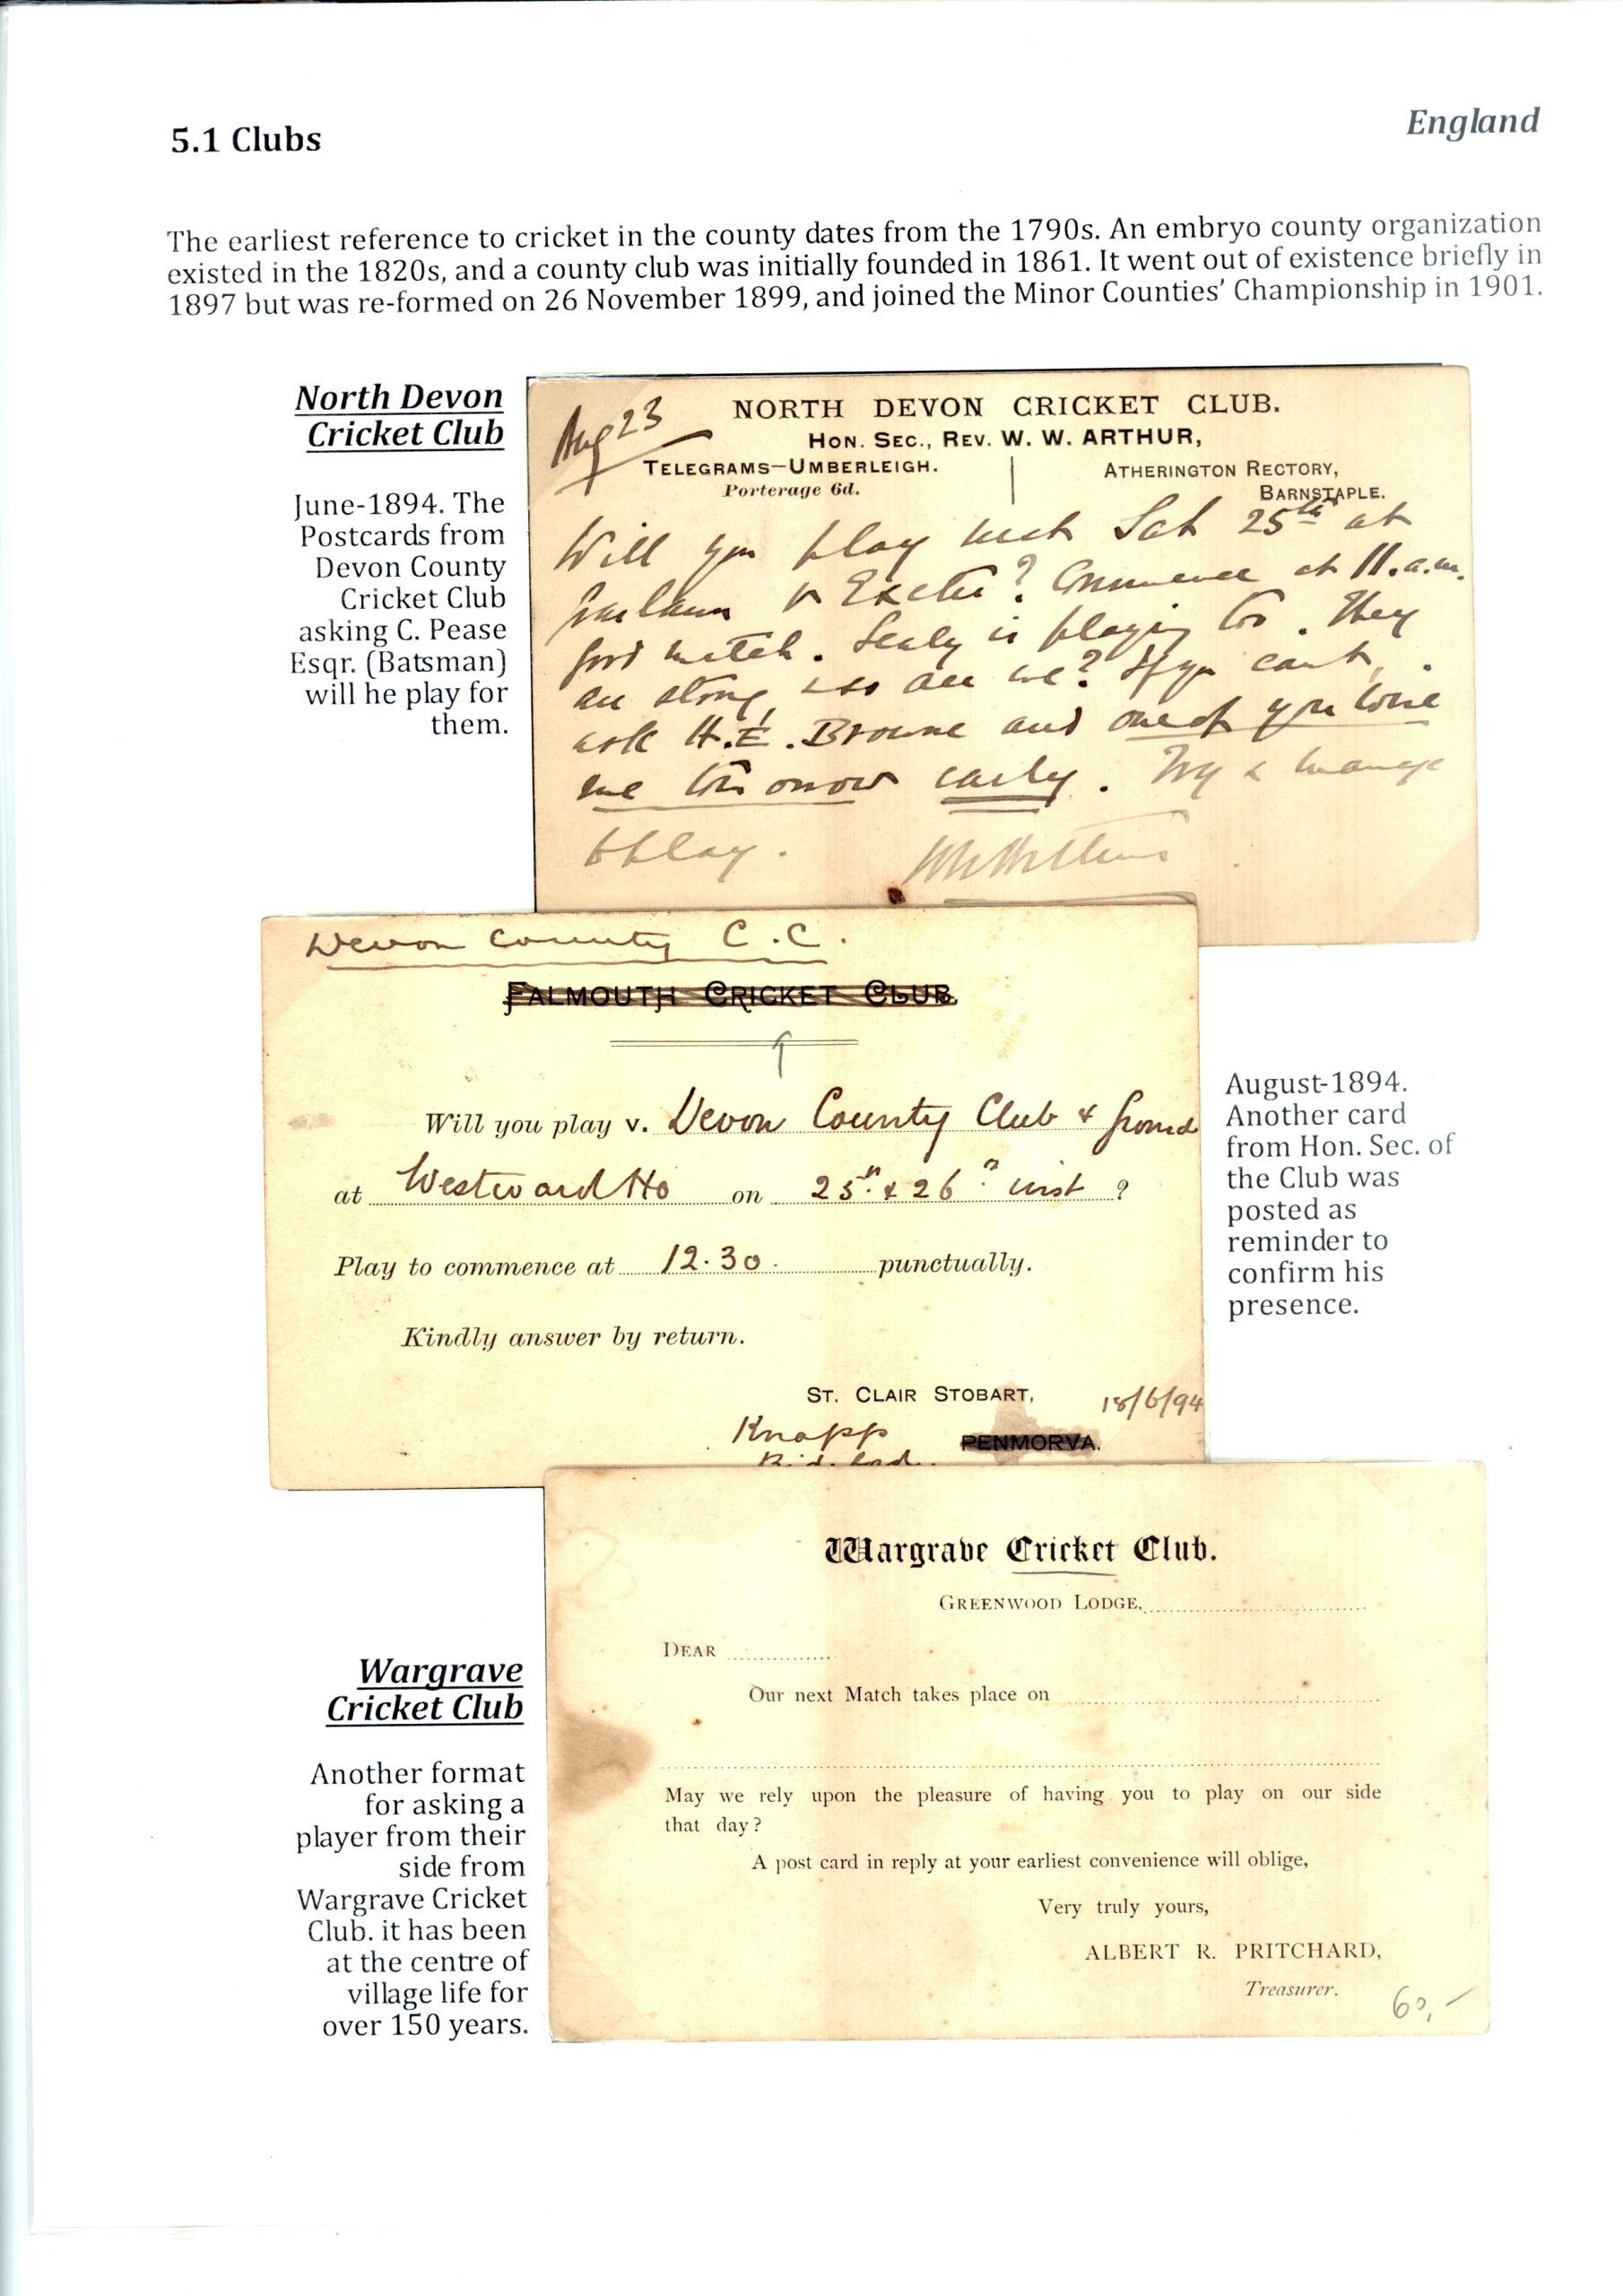 5.1 Clubs
England
The earliest reference to cricket in the county dates from the 1790s. An embryo county organization
existed in the 1820s, and a county club was initially founded in 1861. It went out of existence briefly in
1897 but was re-formed on 26 November 1899, and joined the Minor Counties' Championship in 1901.
North Devon
Cricket Club
June-1894. The
Postcards from
Devon County
Cricket Club
asking C. Pease
Esqr. (Batsman)
will he play for
them.
Aug 23
NORTH DEVON CRICKET CLUB.
HON. SEC., REV. W. W. ARTHUR,
TELEGRAMS—UMBERLEIGH.
Porterage 6d.
ATHERINGTON RECTORY,
BARNSTAPLE.
Will you play next Sat 25th at
v Exeter? Commence at 11.a.m.
good match. Sealy is playing too. They
are strong, so are we? If you can't,
ask H.E. Browne and one of you wire
me tomorrow early. Try & manage
to play.
Devon County C.C.
FALMOUTH CRICKET CLUB.
Will you play v. Devon County Club & Ground
at Westward Ho on 25th & 26th inst ?
Play to commence at 12.30. punctually.
Kindly answer by return.
ST. CLAIR STOBART,
18/6/94
Knapp
PENMORVA.
Bideford.
August-1894.
Another card
from Hon. Sec. of
the Club was
posted as
reminder to
confirm his
presence.
Wargrave
Cricket Club
Another format
for asking a
player from their
side from
Wargrave Cricket
Club. it has been
at the centre of
village life for
over 150 years.
Wargrave Cricket Club.
GREENWOOD LODGE,
DEAR
Our next Match takes place on
May we rely upon the pleasure of having you to play on our side
that day?
A post card in reply at your earliest convenience will oblige,
Very truly yours,
ALBERT R. PRITCHARD,
Treasurer.
60,-